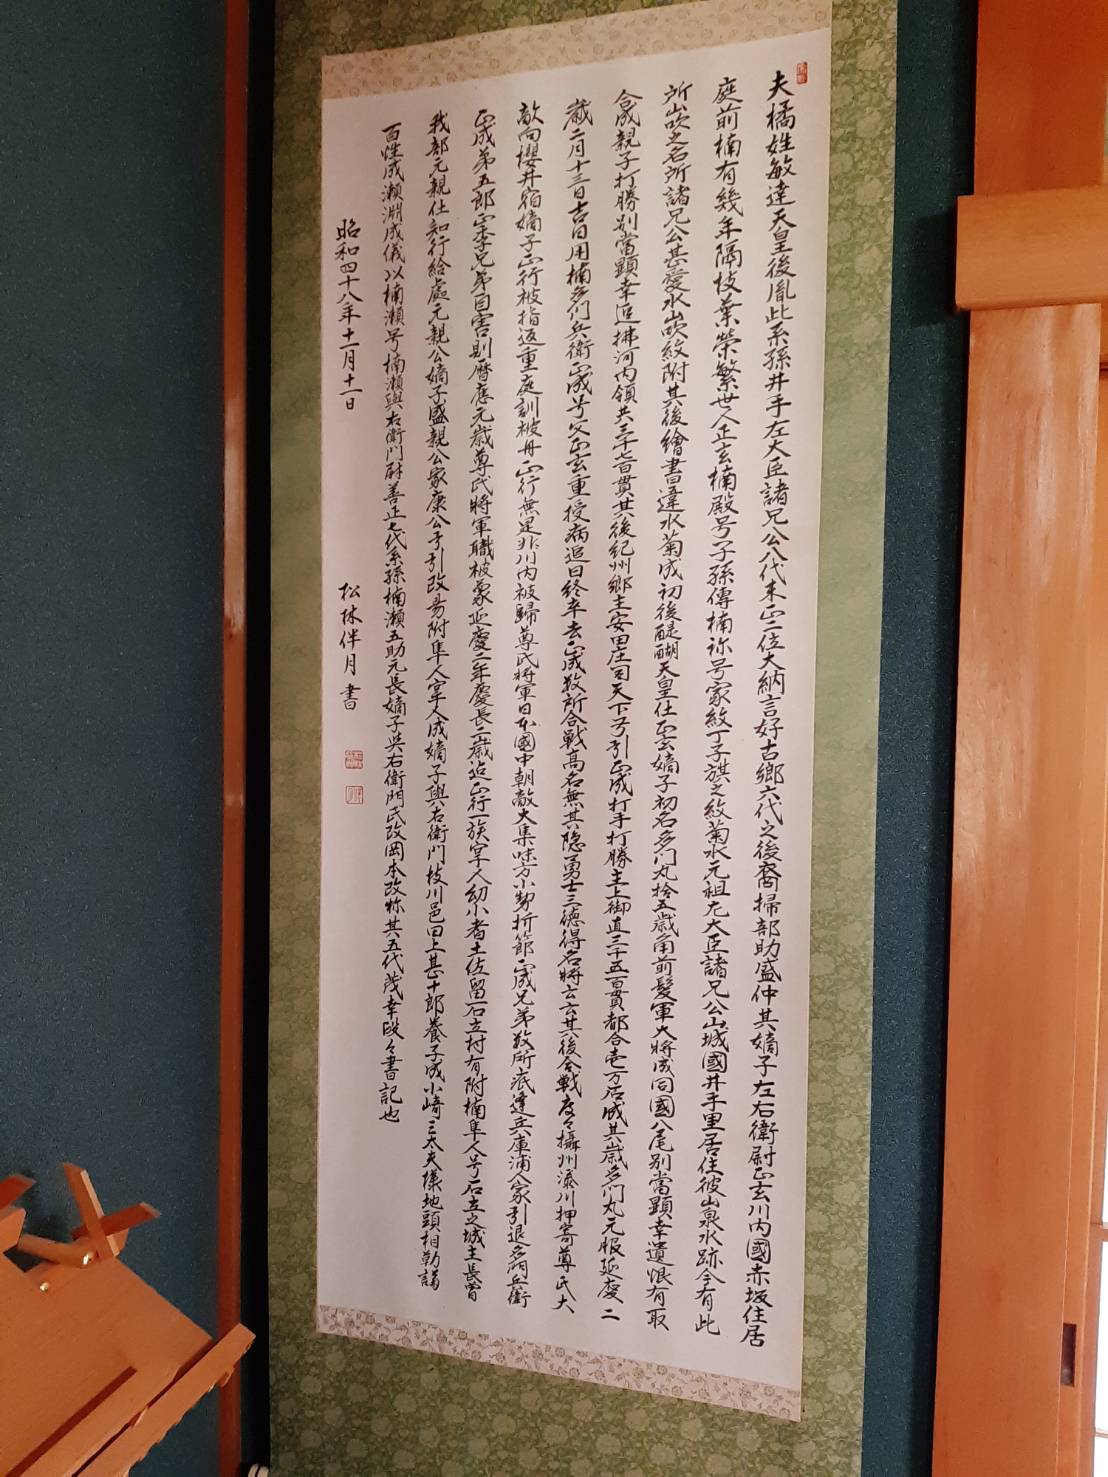 夫橘姓敏達天皇後胤此系孫井手左大臣諸兄公八代末正二位大納言好古郷六代之後裔掃部助盛仲其嫡子左右衛尉正玄川内國赤坂住居
庭前楠有幾年隔枝葉榮繁世人正玄楠殿号子孫傳楠祢号家紋丁子旗之紋菊水元祖左大臣諸兄公山城國井手里居住彼山泉水跡今有此
所山吹之名所諸兄公甚愛水山吹紋附其後繪書違水菊成初後醍醐天皇仕正玄嫡子初名多門丸拾五歳角前髪軍大将成同國八尾別當顕幸遺恨有取
合成親子打勝別當顕幸追拂河内領共三千七百貫其後紀州郷主安田庄司天下弓引正成打手打勝主上御直三千五百貫都合壱万居城其歳多門丸元服延慶二
歳二月十三日吉日用楠多門兵衛正成号父正玄重授病追日終卒去正成数所合戦高名無其隠勇士三徳得名将云云其後合戦度々攝州湊川押寄尊氏大
敵向櫻井宿嫡子正行被指返重庭訓被毋正行無是非川内被歸尊氏将軍日本國中朝敵大集味方小勢折節正成兄弟数所疵逢兵庫浦人家引退多門兵衛
正成弟五郎正季兄弟自害則暦應元歳尊氏将軍職被蒙延慶二年慶長二歳迄正行一族牢人幼少者土佐留石立村有附楠隼人号石立之城主長曽
我部元親仕知行給處元親公嫡子盛親公家康公弓引改易附隼人牢人成嫡子與右衛門枝川邑田上甚十郎養子成小﨑三太夫様地頭相勤諸
百性成瀬渕成儀以楠瀬号楠瀬與右衛門尉善正七代系孫楠瀬五助元長嫡子呉右衛門氏改岡本改称其五代茂幸 々書記也
昭和四十八年十一月十一日 松林伴月書